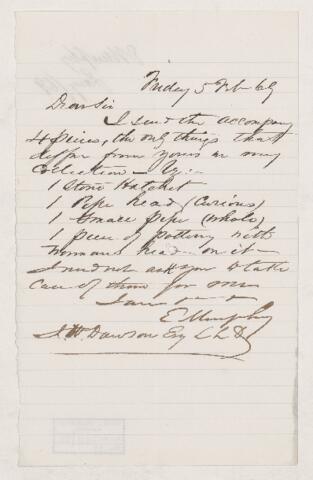 Friday 5 Feb 69
Dear Sir
I send the accompany
4 pieces, the only things that
differ from yours in my
collection - Viz:-
1 Stone Hatchet
1 Pipe head (curious)
1 Small Pipe (whole)
1 piece of pottery with
Womans head on it -
I need not ask you to take
care of them for me
I am
E Murphy
J. W. Dawson Esq L L D